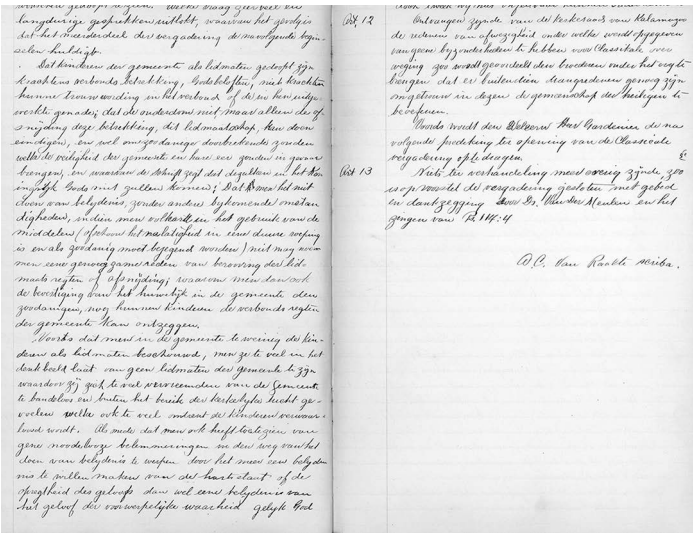 langdurige gesprekken uitlokt, waarvan het gevolg is
dat het meerderdeel der vergadering de navolgende begin-
selen huldigt.
Dat kinderen der gemeente als lidmaten gedoopt zijn
krachtens verbonds betrekking, Gods beloften, niet krachtens
hunne trouw wording in het verbond of de en hen
genade; dat de ouderdom niet maar alleen de af-
snijding deze betrekking, dit lidmaatschap, kan doen
eindigen, en wel om zoodanige doorbrekende zonden
welke de veiligheid der gemeente en hare eer zouden in gevaar
brengen, en waarvan de schrift zegt dat dezulken in het Kon-
ingrijk Gods niet zullen komen; Dat men het niet
doen van belydenis, zonder andere bykomende omstan-
digheden, indien men volhardt in het gebruik van de
middelen (ofschoon het nalatigheid in eene dure roeping
is en als zoodanig moet bejegend worden) niet mag noe-
men eene genoegzame reden van berooving der lid-
maats regten of afsnijding; waarom men dan ook
de bevestiging van het huwelijk in de gemeente den
zoodanigen, nog hunnen kinderen de verbonds regten
der gemeente kan ontzeggen.
Voorts dat men in de gemeente te weinig de kin-
deren als lidmaten beschouwd, men ze te veel in het
denkbeeld laat van geen lidmaten der gemeente te zijn
waardoor zij zich te veel vervreemden van de Gemeente
te bandeloos en buiten het bereik der kerkelyke tucht ge-
voelen welke ook te veel omtrent de kinderen verwaar-
loosd wordt. Als mede dat men ook heeft toetezien van
gene noodelooze belemmeringen in den weg van het
doen van belydenis te werpen door het meer een belyde-
nis te willen maken van de hartestaat of de
opregtheid des geloofs dan wel eene belydenis van
het geloof der voorwerpelijke waarheid gelyk God
Art. 12
Ontvangen zynde van de Kerkeraad van Kalamazoo
de redenen van afwezigheid onder welke wordt opgegeven
van geene byzonderheden te hebben voor Classikale over-
weging zoo wordt geoordeeld den broederen onder het oog te
brengen dat er buitendien drangredenen genoeg zijn
om getrouw in dezen de gemeenschap der heiligen te
beoefenen.
Voorts wordt den Weleerw Heer Gardenier de na
volgende predeking ter opening van de Classicale
vergadering op te dragen.
Art 13
Niets ter verhandeling meer overig zijnde zoo
is op voorstel de vergadering gesloten met gebed
en dankzegging door Ds. Van der Meulen en het
zingen van Ps. 114:4
A.C. Van Raalte scriba.